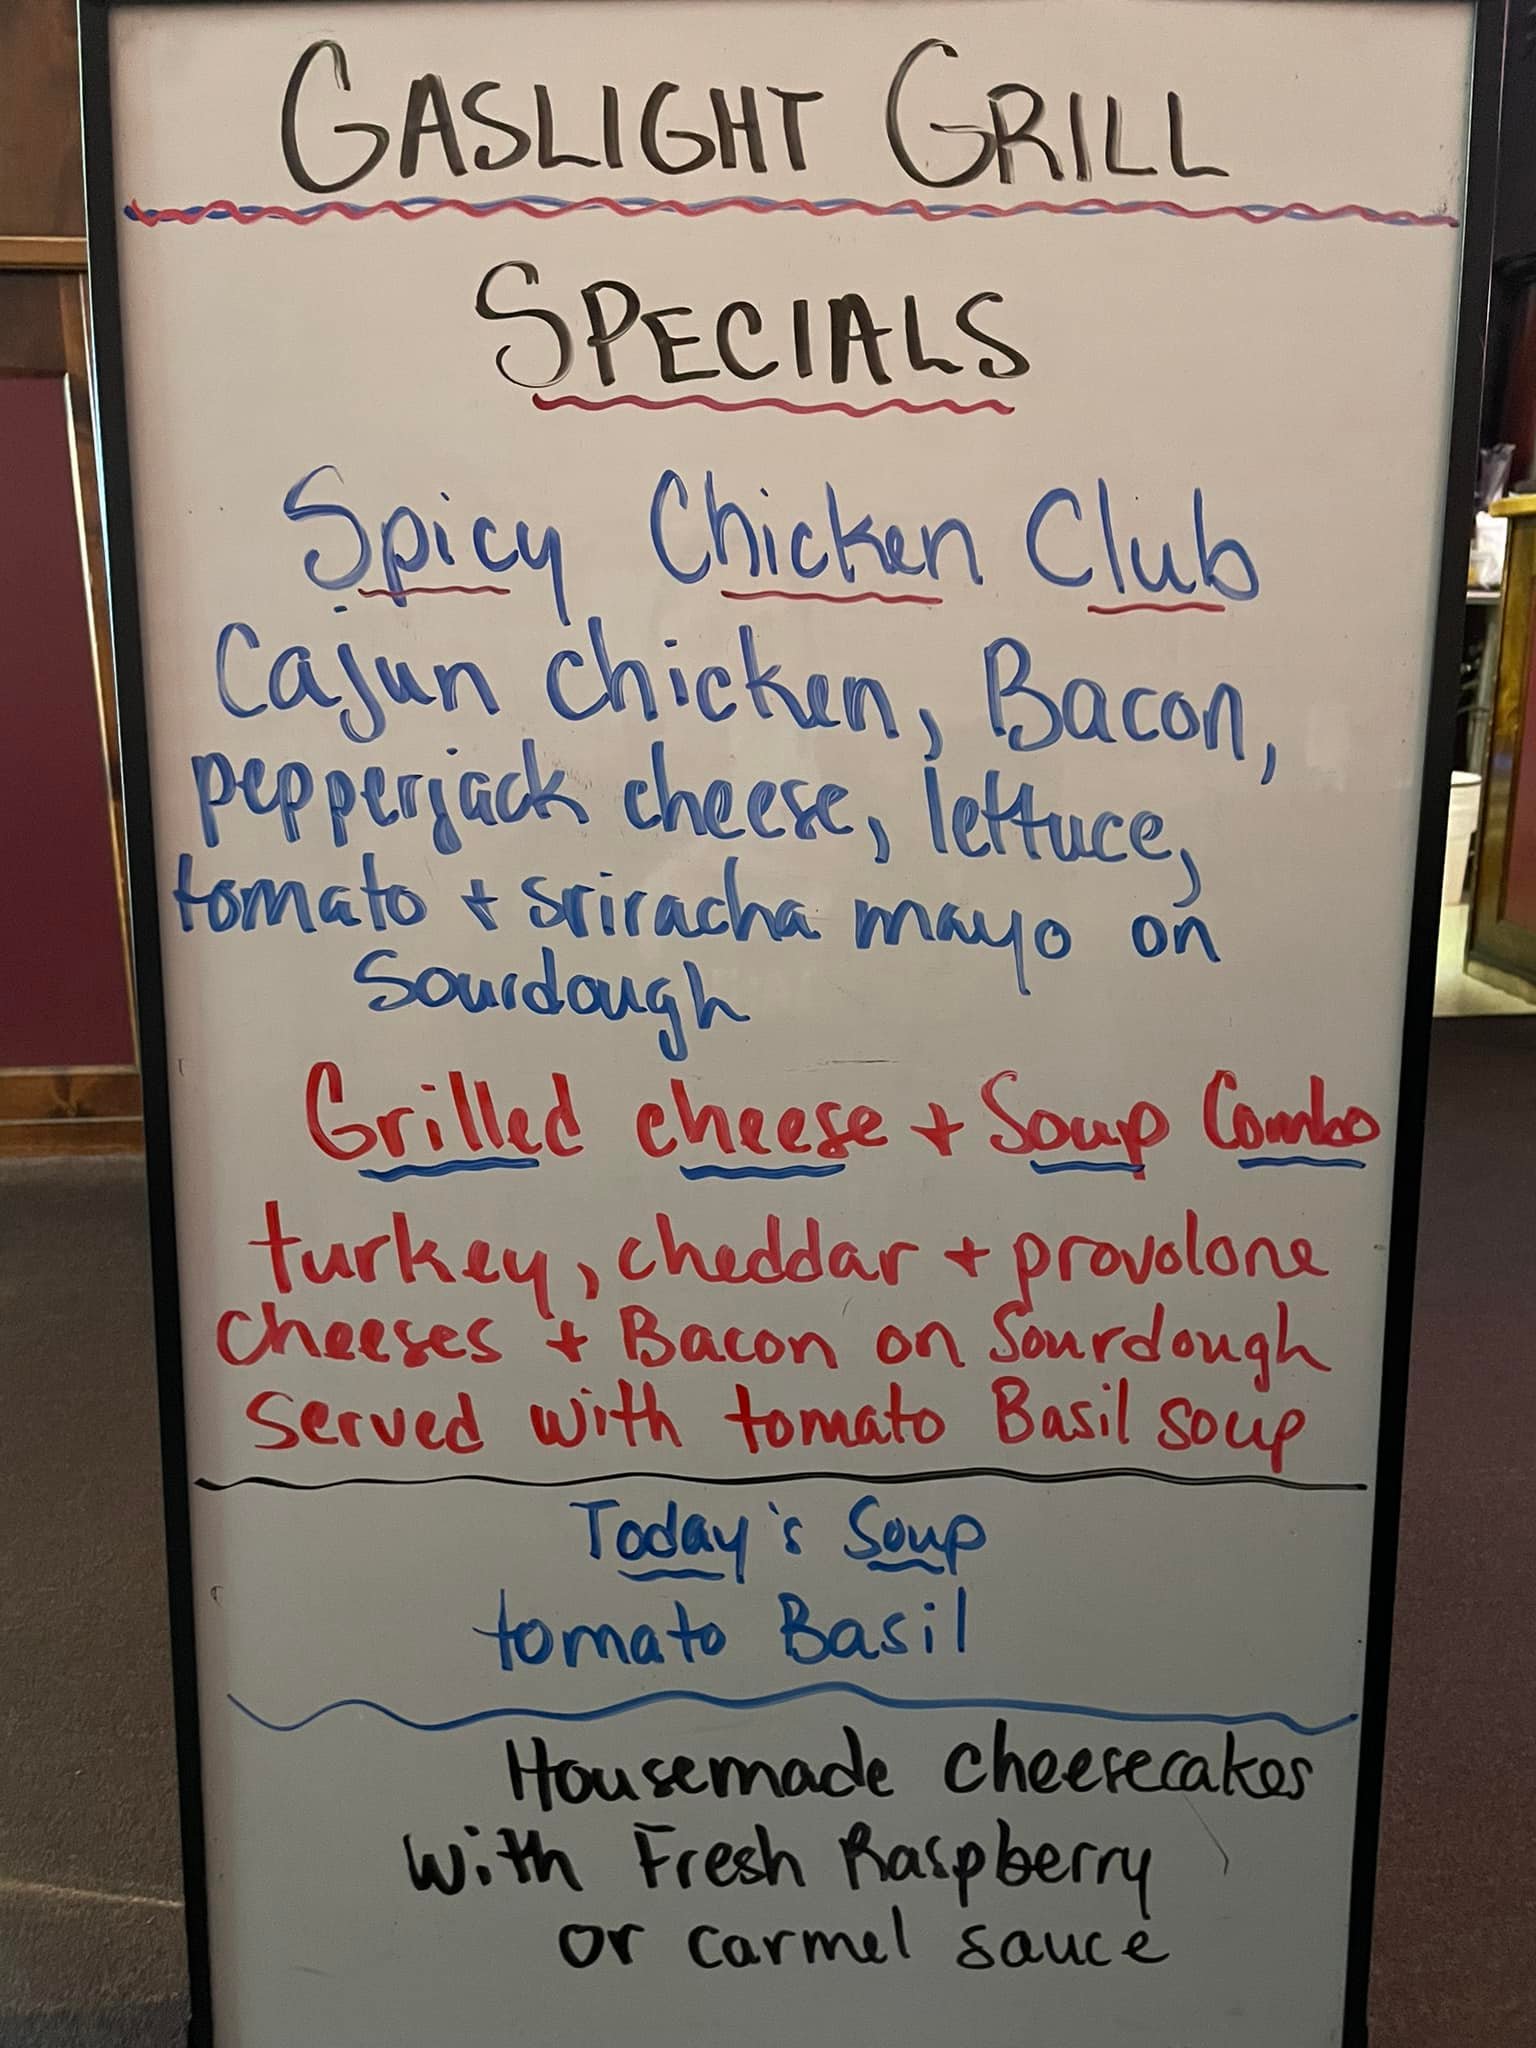 GASLIGHT GRILL
SPECIALS
Spicy Chicken Club
Cajun chicken, Bacon,
pepperjack cheese, lettuce,
tomato + sriracha mayo on
Sourdough
Grilled cheese + Soup Combo
turkey, cheddar + provolone
cheeses + Bacon on Sourdough
Served with tomato Basil soup
Today's Soup
tomato Basil
Housemade cheesecakes
with Fresh Raspberry
or carmel sauce